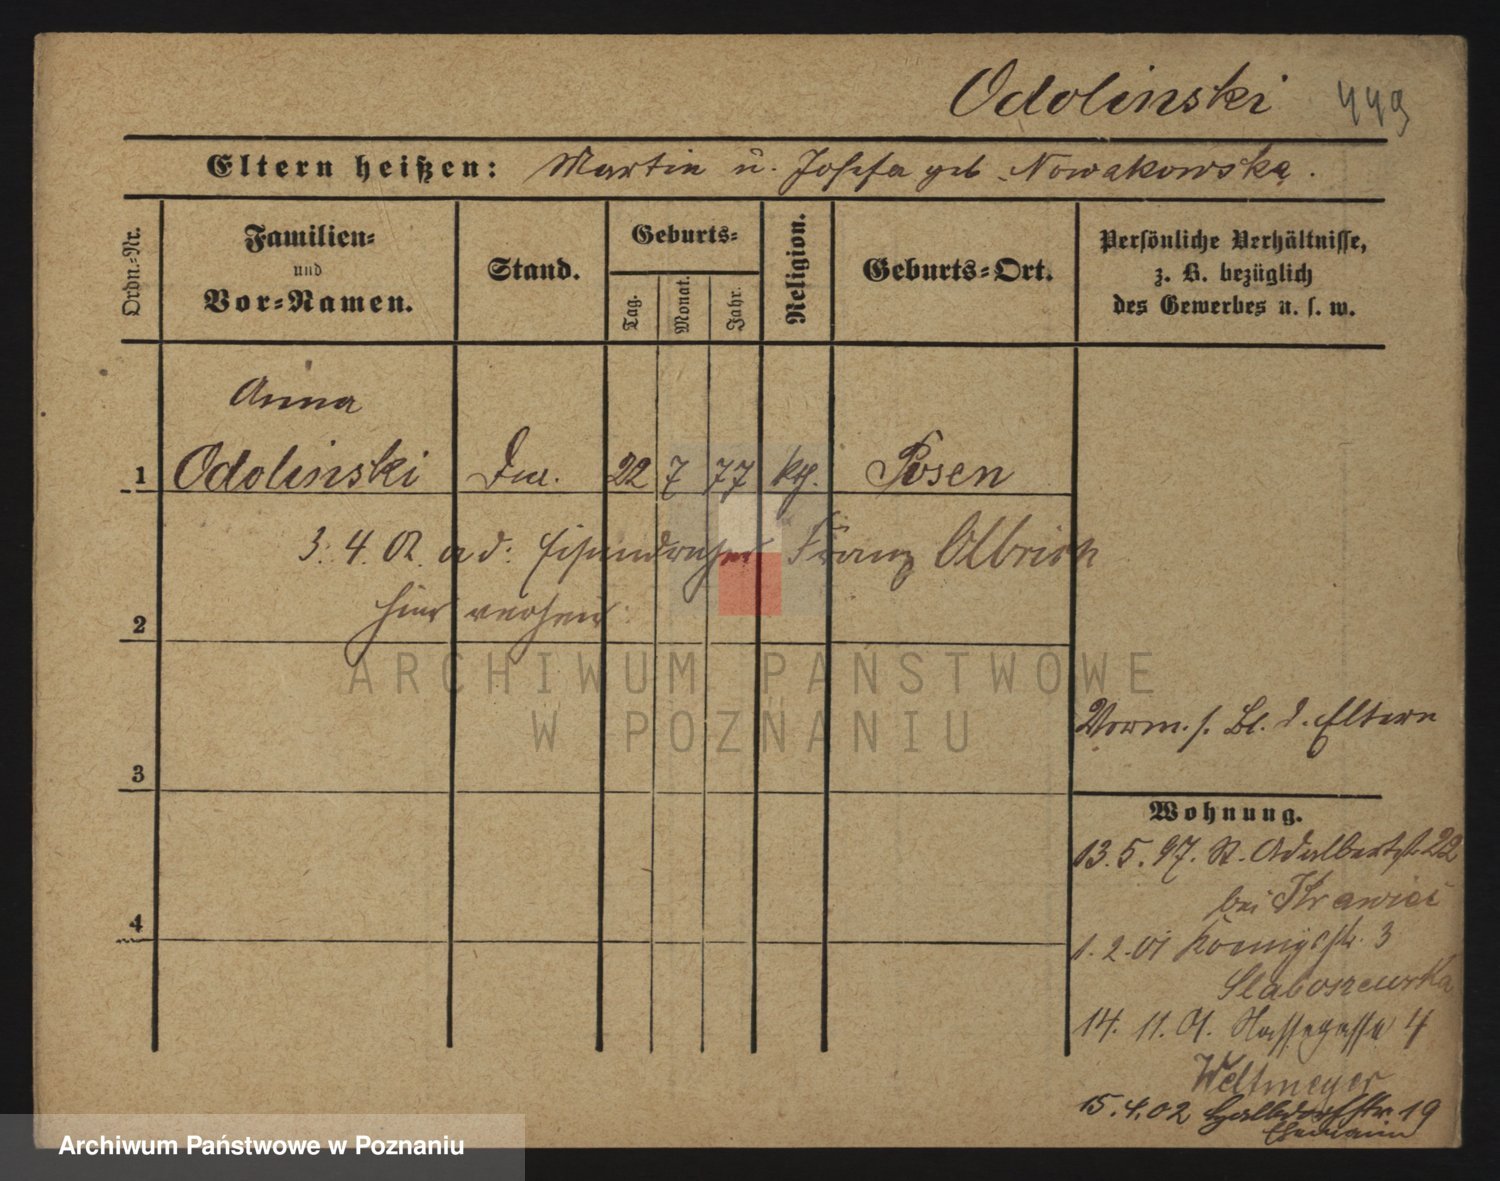 Odolinski 449
Eltern heißen: Martin u. Josefa geb Nowakowska.
Ordn.-Nr.
Familien-
und
Vor-Namen.
Stand.
Geburts-
Tag.
Monat.
Jahr.
Religion.
Geburts-Ort.
Persönliche Verhältnisse,
z. B. bezüglich
des Gewerbes u. s. w.
Anna
1 Odolinski 22 7 77 kth. Posen
3. 4. 02. a d: Eisendreher Franz Olbrich
hier verheir:
2
ARCHIWUM PAŃSTWOWE
W POZNANIU
Vorm. s. Bl. d. Eltern
3
Wohnung.
13. 5. 97. St. Adalbertstr 22
bei
4
1. 2. 01 Koenigsstr. 3
Slaboszewska
14. 11. 01. 4
Weltmeyer
15. 4. 02 Halbdorfstr 19
Ehemann
Archiwum Państwowe w Poznaniu